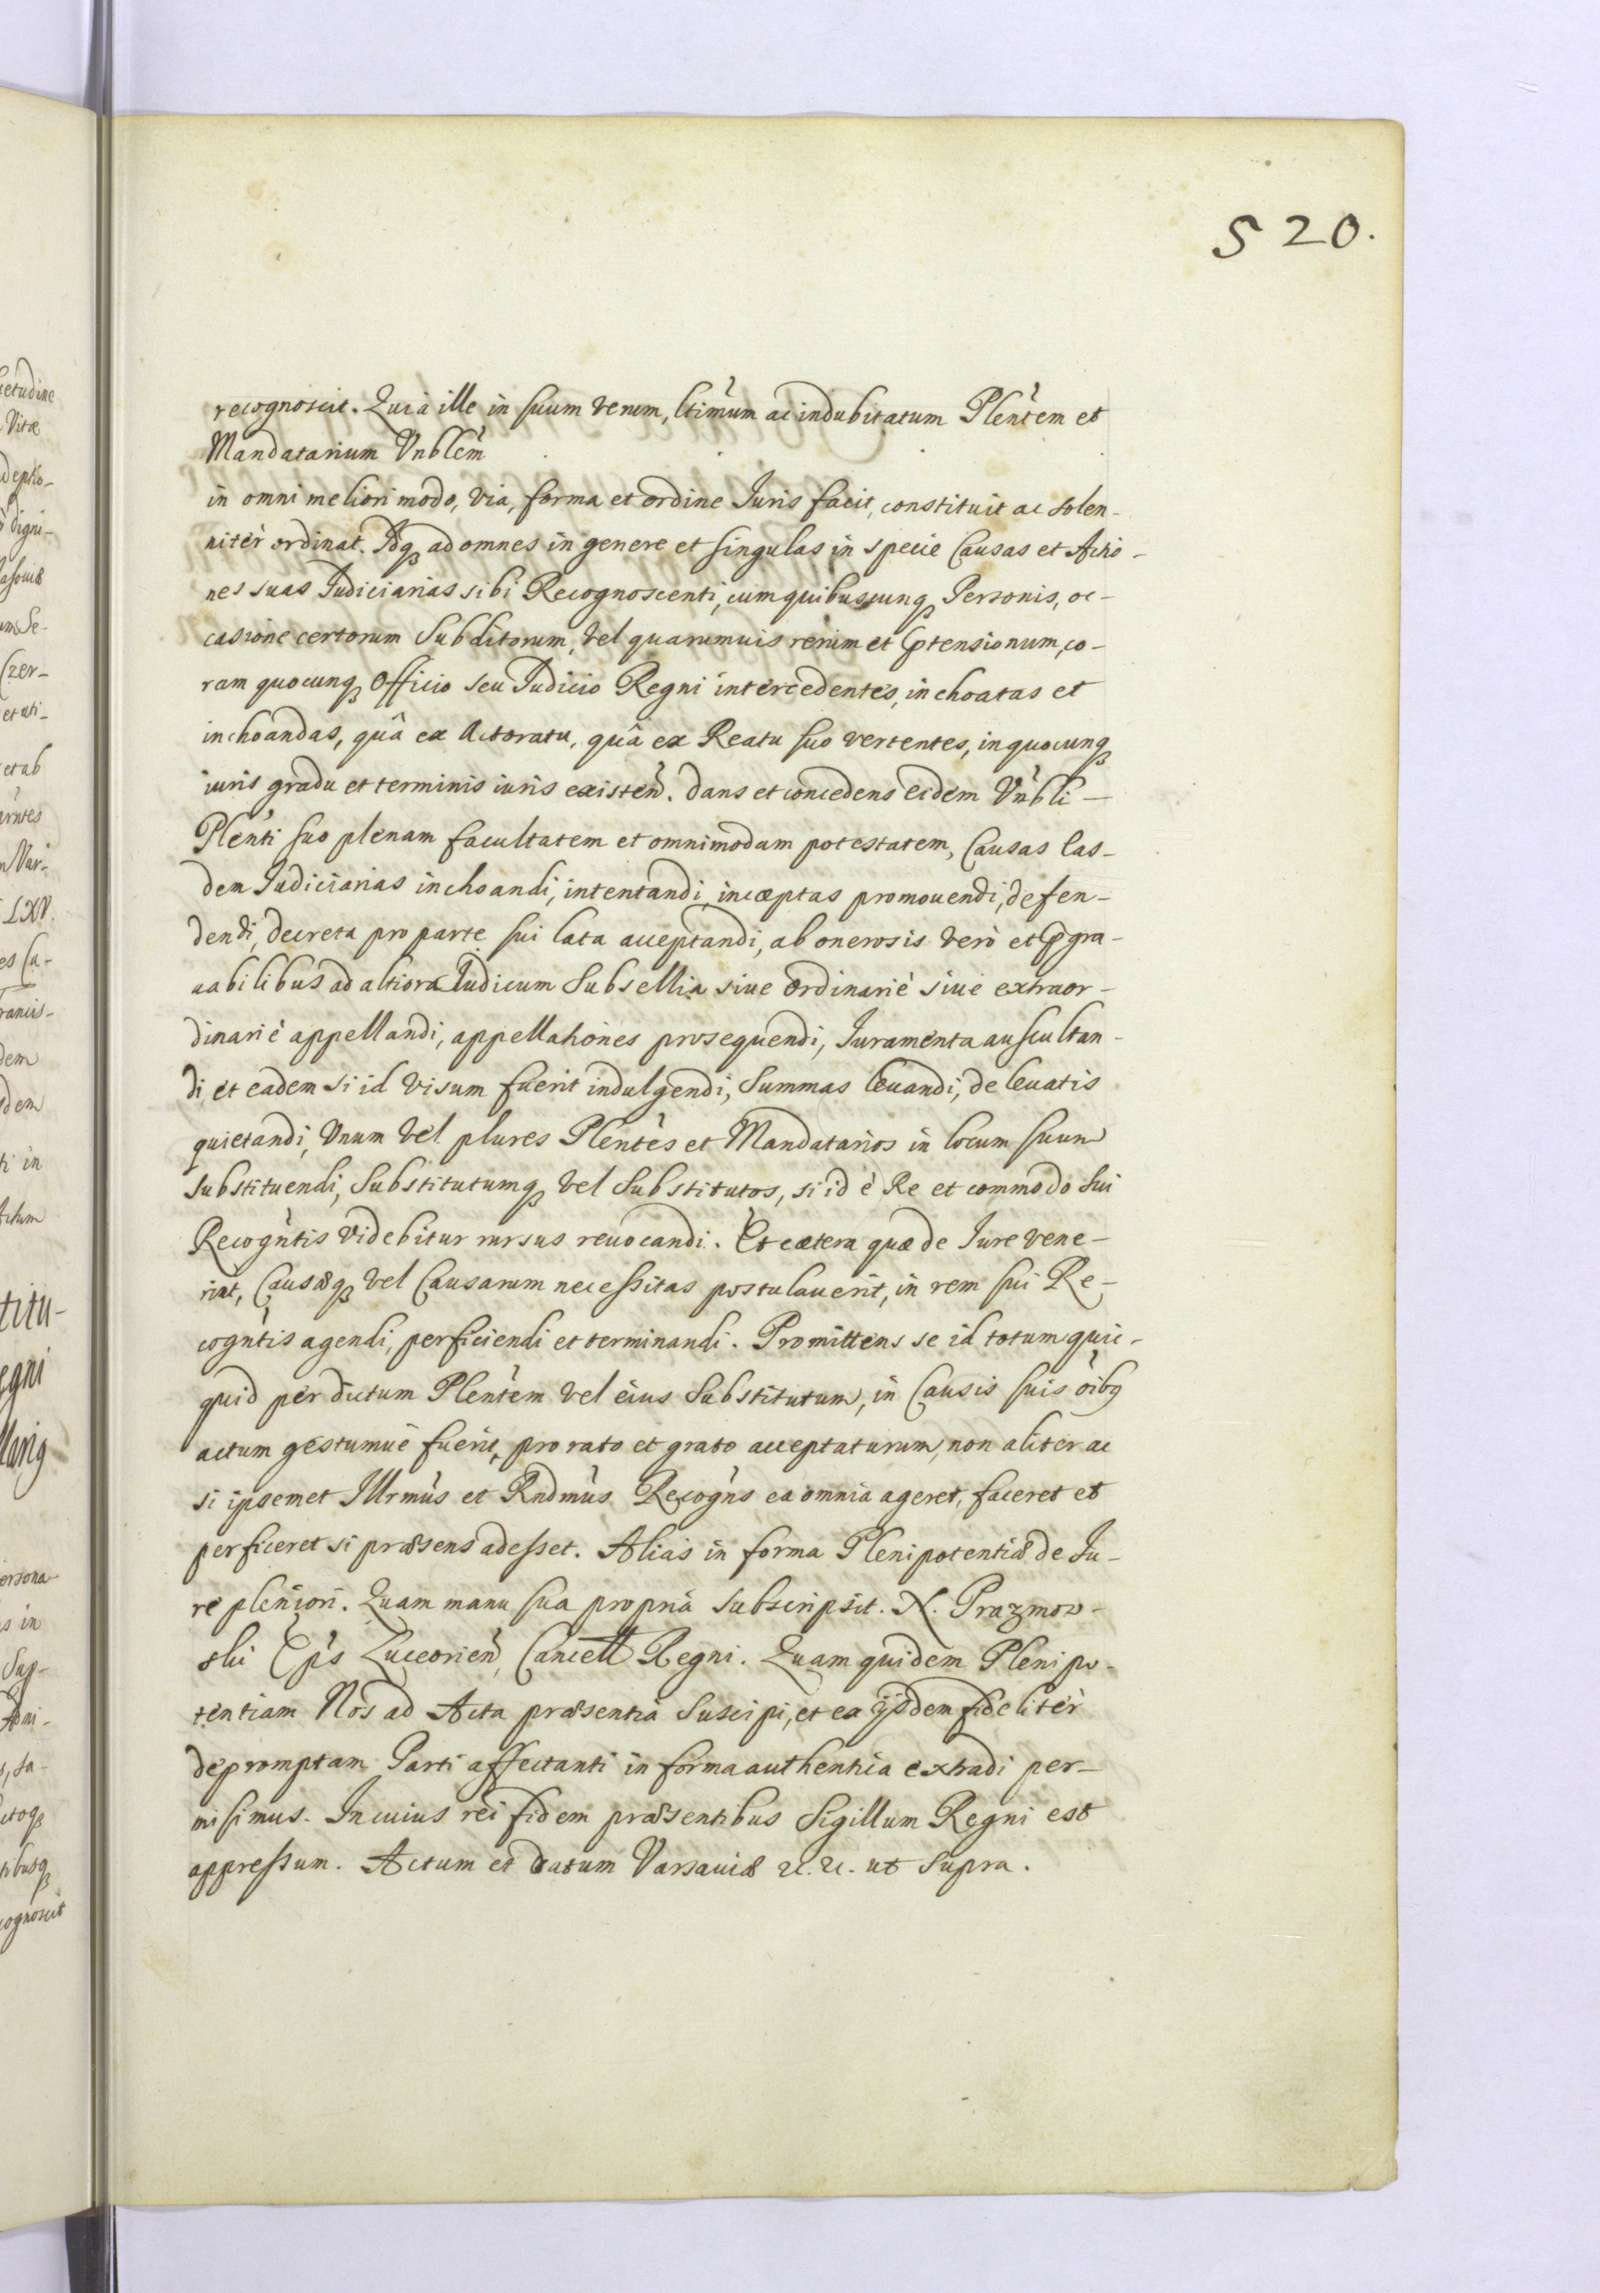 520.
recognoscit. Quià ille in suum verum, ltimùm ac indubitatum Plentèm et
Mandatarium Vnblèm
in omni meliori modo, via, forma et ordine Iuris facit, constituit ac solen-
nitèr ordinat. Idq ad omnes in genere et singulas in specie Causas et Actio-
nes suas Iudiciarias sibi Recognoscenti, cum quibuscunq Personis, oc-
casione certorum Subditorum, vel quarumuis rerum et Ptensionum, co-
ram quocunq Officio seu Iudicio Regni intercedentes, inchoatas et
inchoandas, quâ ex Actoratu, quâ ex Reatu suo vertentes, in quocunq
iuris gradu et terminis iuris existeǹ. Dans et concedens eidem Vnbli-
Plenti suo plenam facultatem et omnimodam potestatem, Causas eas-
dem Iudiciarias inchoandi, intentandi, incæptas promouendi, defen-
dendi, decreta pro parte sui lata acceptandi, ab onerosis verò et Pgra-
uabilibus ad altiora Iudicum Subsellia siue ordinariè siue extraor-
dinariè appellandi, appellationes prosequendi, Iuramenta auscultan-
di et eadem si id visum fuerit indulgendi, Summas leuandi, de leuatis
quietandi, Vnum vel plures Plentès et Mandatarios in locum suum
substituendi, Substitutumq vel Substitutos, si id è Re et commodo sui
Recogntis videbitur rursus reuocandi. Et cætera quæ de Iure vene-
rint, Causæq vel Causarum necessitas postulauerit, in rem sui Re-
cogntis agendi, perficiendi et terminandi. Promittens se id totum quic-
quid per dictum Plentèm vel eius Substitutum, in Causis suis oìbq
actum gestumuè fuerit, pro rato et grato acceptaturum, non aliter ac
si ipsemet Illrmùs et Rndmùs Recogǹs ea omnia ageret, faceret et
perficeret si præsens adesset. Alias in forma Plenipotentiæ de Iu-
re pleniori. Quam manu sua propria subscripsit. N. Prazmow-
ski Eps̀ Luceorieǹ, Cancell Regni. Quam quidem Plenipo-
tentiam Nos ad Acta præsentia suscipi, et ex ijsdem fidelitèr
depromptam Parti affectanti in forma authentica extradi per-
misimus. In cuius rei fidem præsentibus Sigillum Regni est
appressum. Actum et datum Varsauiæ &c. &c. ut supra.